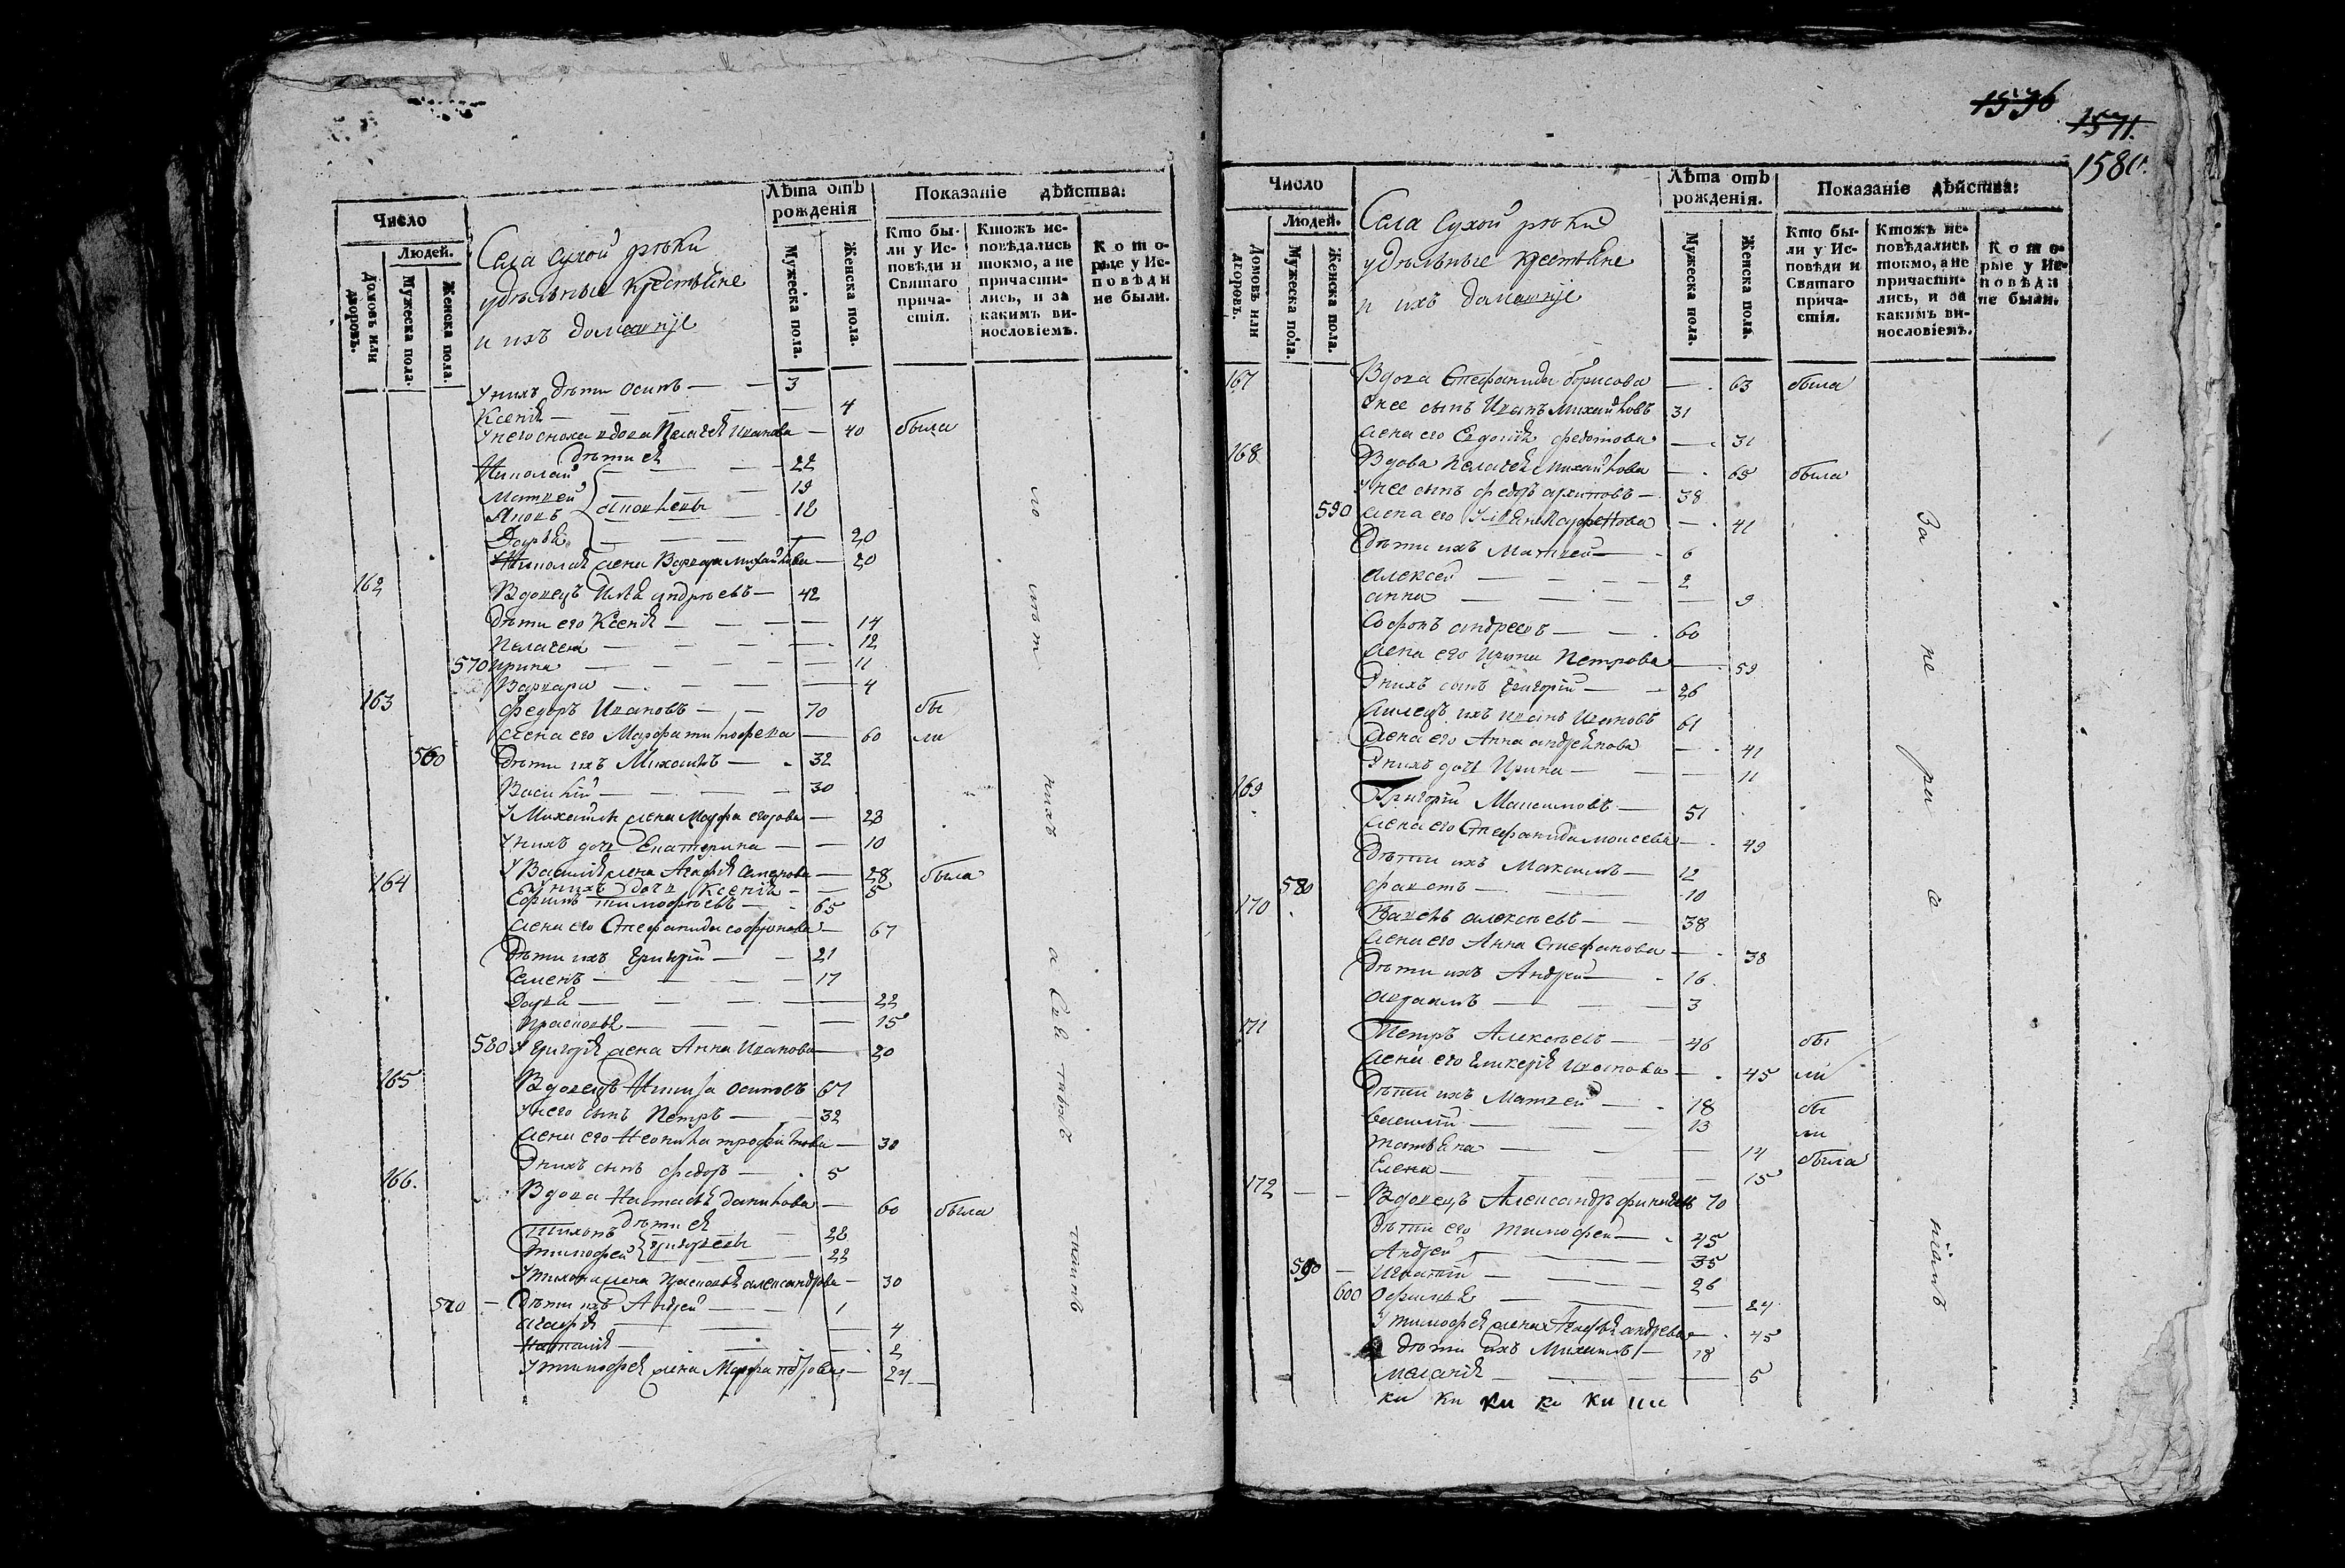 Число
Людей.
Домовъ или дворовъ.
Мужеска пола.
Женска пола.
Села Сухой рѣки
удѣльные крестьяне
и ихъ домашніе
Лѣта отъ рожденія
Мужеска пола.
Женска пола.
Показаніе дѣйства:
Кто бы-
ли у Ис-
повѣди и
Святаго
прича-
стія.
Ктожъ ис-
повѣдались
токмо, а не
причасти-
лись, и за
какимъ ви-
нословіемъ.
Кото-
рые у Ис-
повѣди
не были.
У нихъ дѣти Осипъ — — 3
Ксенія — — — 4
У него сноха вдова Пелагея Иванова — 40 была
дѣти ея
Николай — — 22
Матвей — 19
Яковъ — 12
Яковлевы
Дарья — — 20
У Николая жена Варвара Михайлова — 20
162 Вдовецъ Илья Андреевъ — 42
Дѣти его Ксенія — — 14
Пелагея — — 12
570 Ирина — — 11
Варвара — — 4
163 Федоръ Ивановъ — 70 бы
Жена его Марфа Тимофеева — 60 ли
560 Дѣти ихъ Михаилъ — 32
Василій — — 30
У Михаила жена Марфа Егорова — 28
У нихъ дочь Екатерина — — 10
У Василія жена Агафія Семенова — 28 была
У нихъ дочь Ксенія — — 5
164 Тимофеевъ — 65
Жена его Стефанида Софронова — 67
Дѣти ихъ Григорій — — 21
Семенъ — — 17
Дарья — — 22
Прасковья — — 15
580 У Григорія жена Анна Иванова — 20
165 Вдовецъ Никита Осиповъ 67
У него сынъ Петръ — — 32
Жена его Неонила Трофимова — 30
У нихъ сынъ Федоръ — 5
166. Вдова Настасья Данилова — 60 была
дѣти ея
Тихонъ — 28
Тимофей — 22
Григорьевы
У Тихона жена Прасковья Александрова — 30
570 — Дѣти ихъ Андрей — — 1
Агафія — — 4
Наталія — — 2
У Тимофея жена Марфа Петрова — 24
1576
1571.
1580.
Число
Людей.
Домовъ или дворовъ.
Мужеска пола.
Женска пола.
Села Сухой рѣки
удѣльные крестьяне
и ихъ домашніе
Лѣта отъ рожденія.
Мужеска пола.
Женска пола.
Показаніе дѣйства:
Кто бы-
ли у Ис-
повѣди и
Святаго
прича-
стія.
Ктожъ ис-
повѣдались
токмо, а не
причасти-
лись, и за
какимъ ви-
нословіемъ.
Кото-
рые у Ис-
повѣди
не были.
167 Вдова Стефанида Борисова — 63 была
У нее сынъ Иванъ Михайловъ 31
Жена его Евдокія Федотова — 31
168 Вдова Пелагея Михайлова — 65 была
У нее сынъ Федоръ Архиповъ — 38
590 Жена его — 41
Дѣти ихъ Матвей — 6
Алексей — — 2
Анна — — 9
Софонъ Андреевъ — 60
Жена его Ирина Петрова — 59
У нихъ сынъ Григорій — 26
Жилецъ ихъ Иванъ Ивановъ 61
Жена его Анна Андреянова — 41
У нихъ дочь Ирина — — 11
169 Григорій Максимовъ — 51
Жена его Стефанида Моисеева — 49
Дѣти ихъ Максимъ — 12
580 — 10
170 Павелъ Алексѣевъ — 38
Жена его Анна Стефанова — 38
Дѣти ихъ Андрей — 16
Авраамъ — — 3
171 Петръ Алексѣевъ — 46 бы
Жена его Гликерія — 45 ли
Дѣти ихъ Матвей — 18 бы
Василий — — 13 ли
Татьяна — — 14 была
Елена — — 15
172 — — Вдовецъ Александръ 70
Дѣти его Тимофей — 45
Андрей — — 35
590 — Игнатій — — 26
600 — — 24
У Тимофея жена Агафья Андреева — 45
дѣти ихъ Михаилъ — 18
Меланія — — 5
ки ки ки ки ки
За не ра се